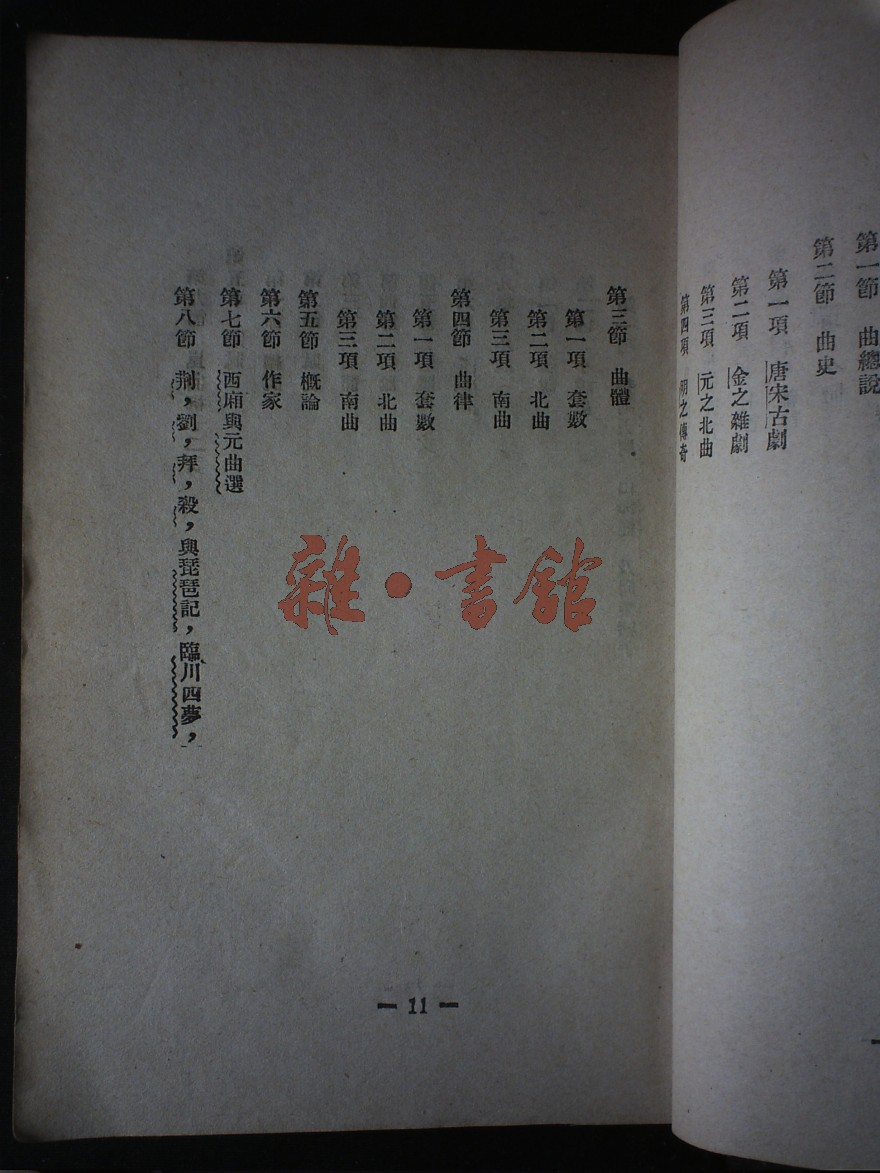 第一節　曲總說
第二節　曲史
第一項　唐宋古劇
第二項　金之雜劇
第三項　元之北曲
第四項　明之傳奇
第三節　曲體
第一項　套數
第二項　北曲
第三項　南曲
第四節　曲律
第一項　套數
第二項　北曲
第三項　南曲
第五節　概論
第六節　作家
第七節　西廂與元曲選
第八節　荆，劉，拜，殺，與琵琶記，臨川四夢，
— 11 —
雜·書館